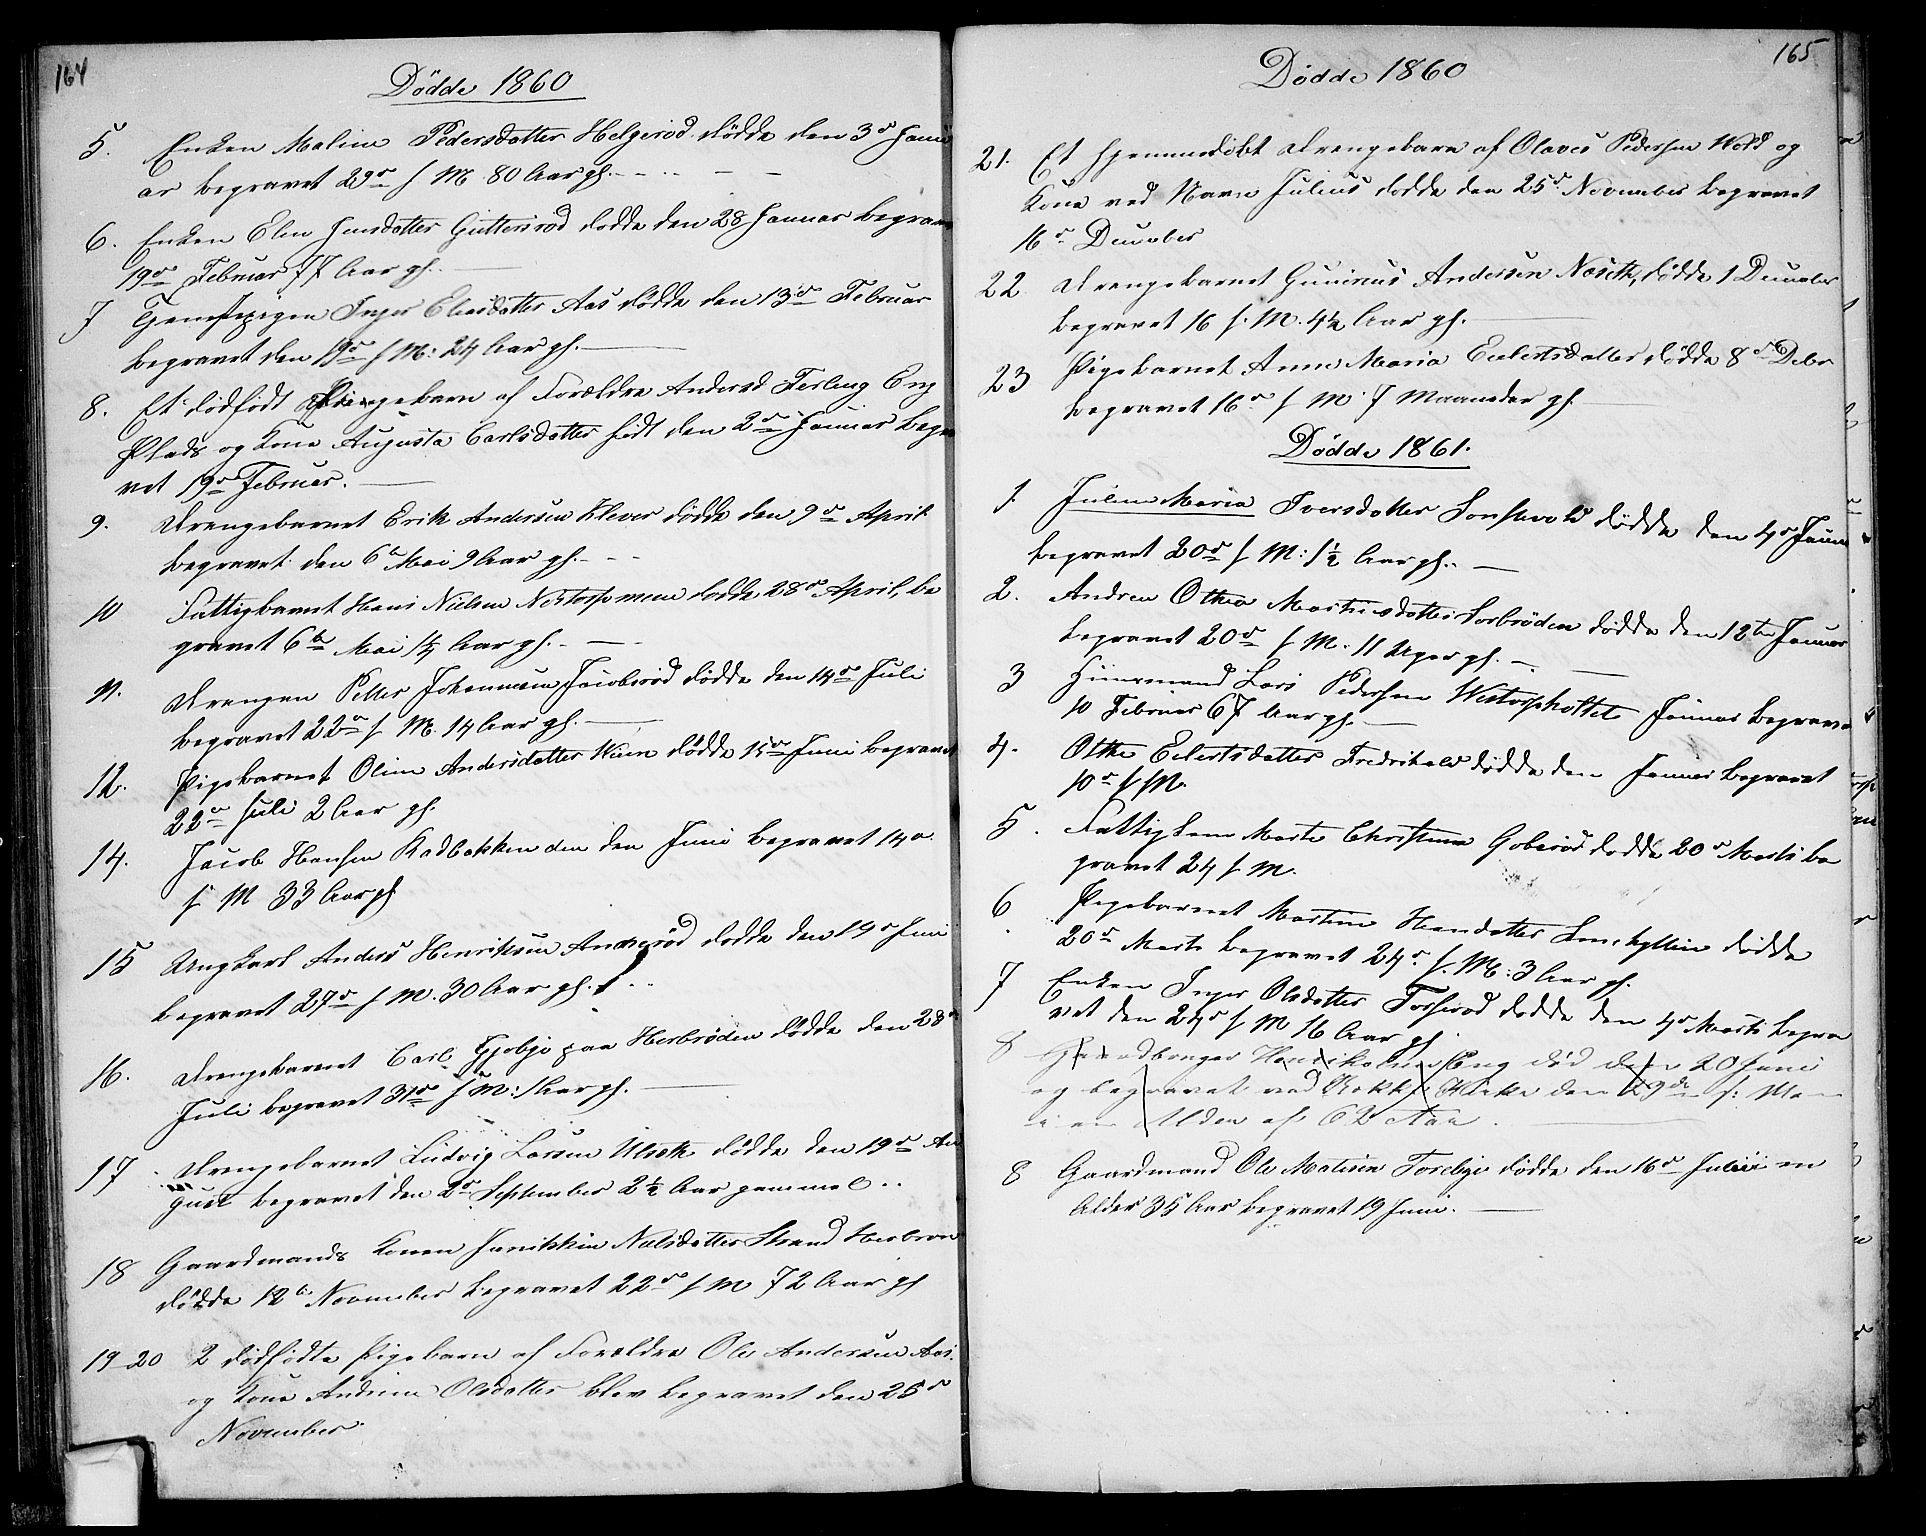 164
Dödde 1860
5. Enken Maline Pedersdatter Helgerød dödde den 3d Janu
ar begravet 29de s M. 80 Aar gl.
6. Enken Elen Jensdatter Guttersrød dödde den 28 Januar begravet
19de Februar 77 Aar gl.
7 Tjenestepigen Inger Eliasdatter Aas dödde den 13de Februar
begravet den 19de s M: 24 Aar gl.
8. Et dödfödt Pigebarn af Forældre Anders Ferling Eng
Plads og Kone Augusta Carlsdatter födt den 2de Januar begra
vet 19de Februar.
9. Drengebarnet Erik Andersen Klever dödde den 9de April
begravet den 6te Mai 9 Aar gl.
10 Fattigbarnet Hans Nielsen dödde 28de April, be
gravet 6te Mai Aar gl.
11. Drengen Petter Johannesen Jacobsrød dödde den 14de Juli
begravet 22de s M. 14 Aar gl.
12. Pigebarnet Oline Andersdatter Wiin dödde 15de Juni begravet
22de Juli 2 Aar gl.
14. Jacob Hansen Radbakken den Juni begravet 14de
s M 33 Aar gl
15 Ungkarl Anders Henriksen dödde den 19de Juni
begravet 27de s M. 30 Aar gl.
16. Drengebarnet Carl Gjøbje paa Herbrøden dödde den 28de
Juli begravet 31de s M: 1 Aar gl.
17. Drengebarnet Ludvig Larsen Ulsek dödde den 19de Au
gust begravet den 2de September 2½ Aar gammel
18 Gaardmands Konen Janikken Nielsdatter Strand Herbrøn
dödde 12te November begravet 22de s M 72 Aar gl
19-20 2 dödfödte Pigebarn af Forældre Ole Andersen Aas.
og Kone Andrine Olsdatter blev begravet den 25de
November
165
Dødde 1860
21. Et hjemmedöbt Drengebarn af Olaves Pedersen Wold og
Kone ved Navn Julius dödde den 25de November begravet
16de December
22. Drengebarnet Gunerius Andersen Næseth, dödde 1 December
begravet 16 s. M. 4½ Aar gl.
23 Pigebarnet Anne Maria Eilertsdatter dödde 8de Decbr
begravet 16de s M 7 Maaneder gl.
Dødde 1861.
1. Juline Maria Iversdatter dödde den 4de Januar
begravet 20de s M: 1½ Aar gl.
2. Andrea Othea Martinsdatter Sorbröden dödde den 12te Januar
begravet 20de s M. 11 Uger gl.
3 Huusmand Lars Pedersen Westorpkottet Januar begravet
10 Februar 67 Aar gl.
4. Othea Eilertsdatter Fredrikshald dödde den Januar begravet
10de s M.
5. Fattiglem Marte Christine Goberød dödde 20de Marts be
gravet 24 s M.
6 Pigebarnet Martine Hansdatter dödde
20de Marts begravet 24de s. M: 3 Aar gl.
7 Enken Inger Olsdatter Torserød dödde den 4de Marts begra
vet den 24de s M 76 Aar gl
8 Gaardbruger Eng död den 20 Juni
og begravet ved Rokke Kirke den 29de s: Ma
i en Alder af 62 Aar.
8 Gaardmand Ole Matisen Torebye dödde den 16de Juni en
Alder 35 Aar begravet 19 Juni.